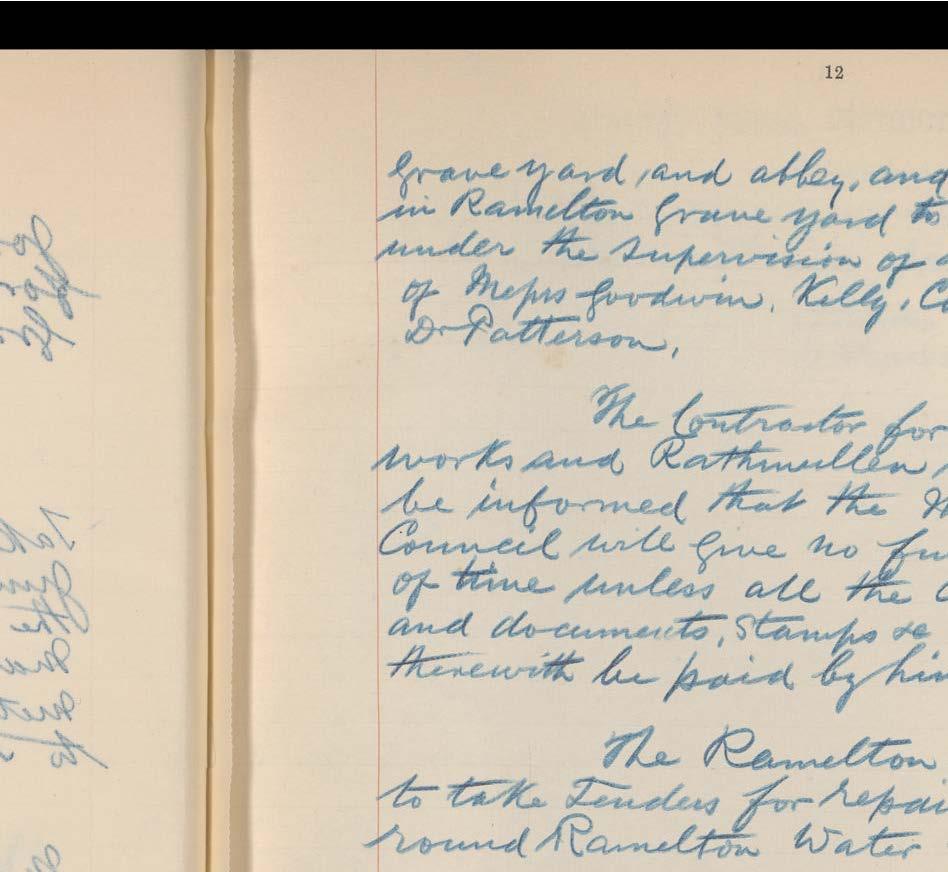 12
Grave yard, and abbey, and
in Ramelton Grave yard to
under the supervision of a
of Messrs Goodwin, Kelly, C
Dr Patterson,
The Contractor for
works and Rathmullen
be informed that the
Council will give no fu
of time unless all the C
and documents, Stamps &c
therewith be paid by him
The Ramelton
to take Tenders for repai
round Ramelton Water